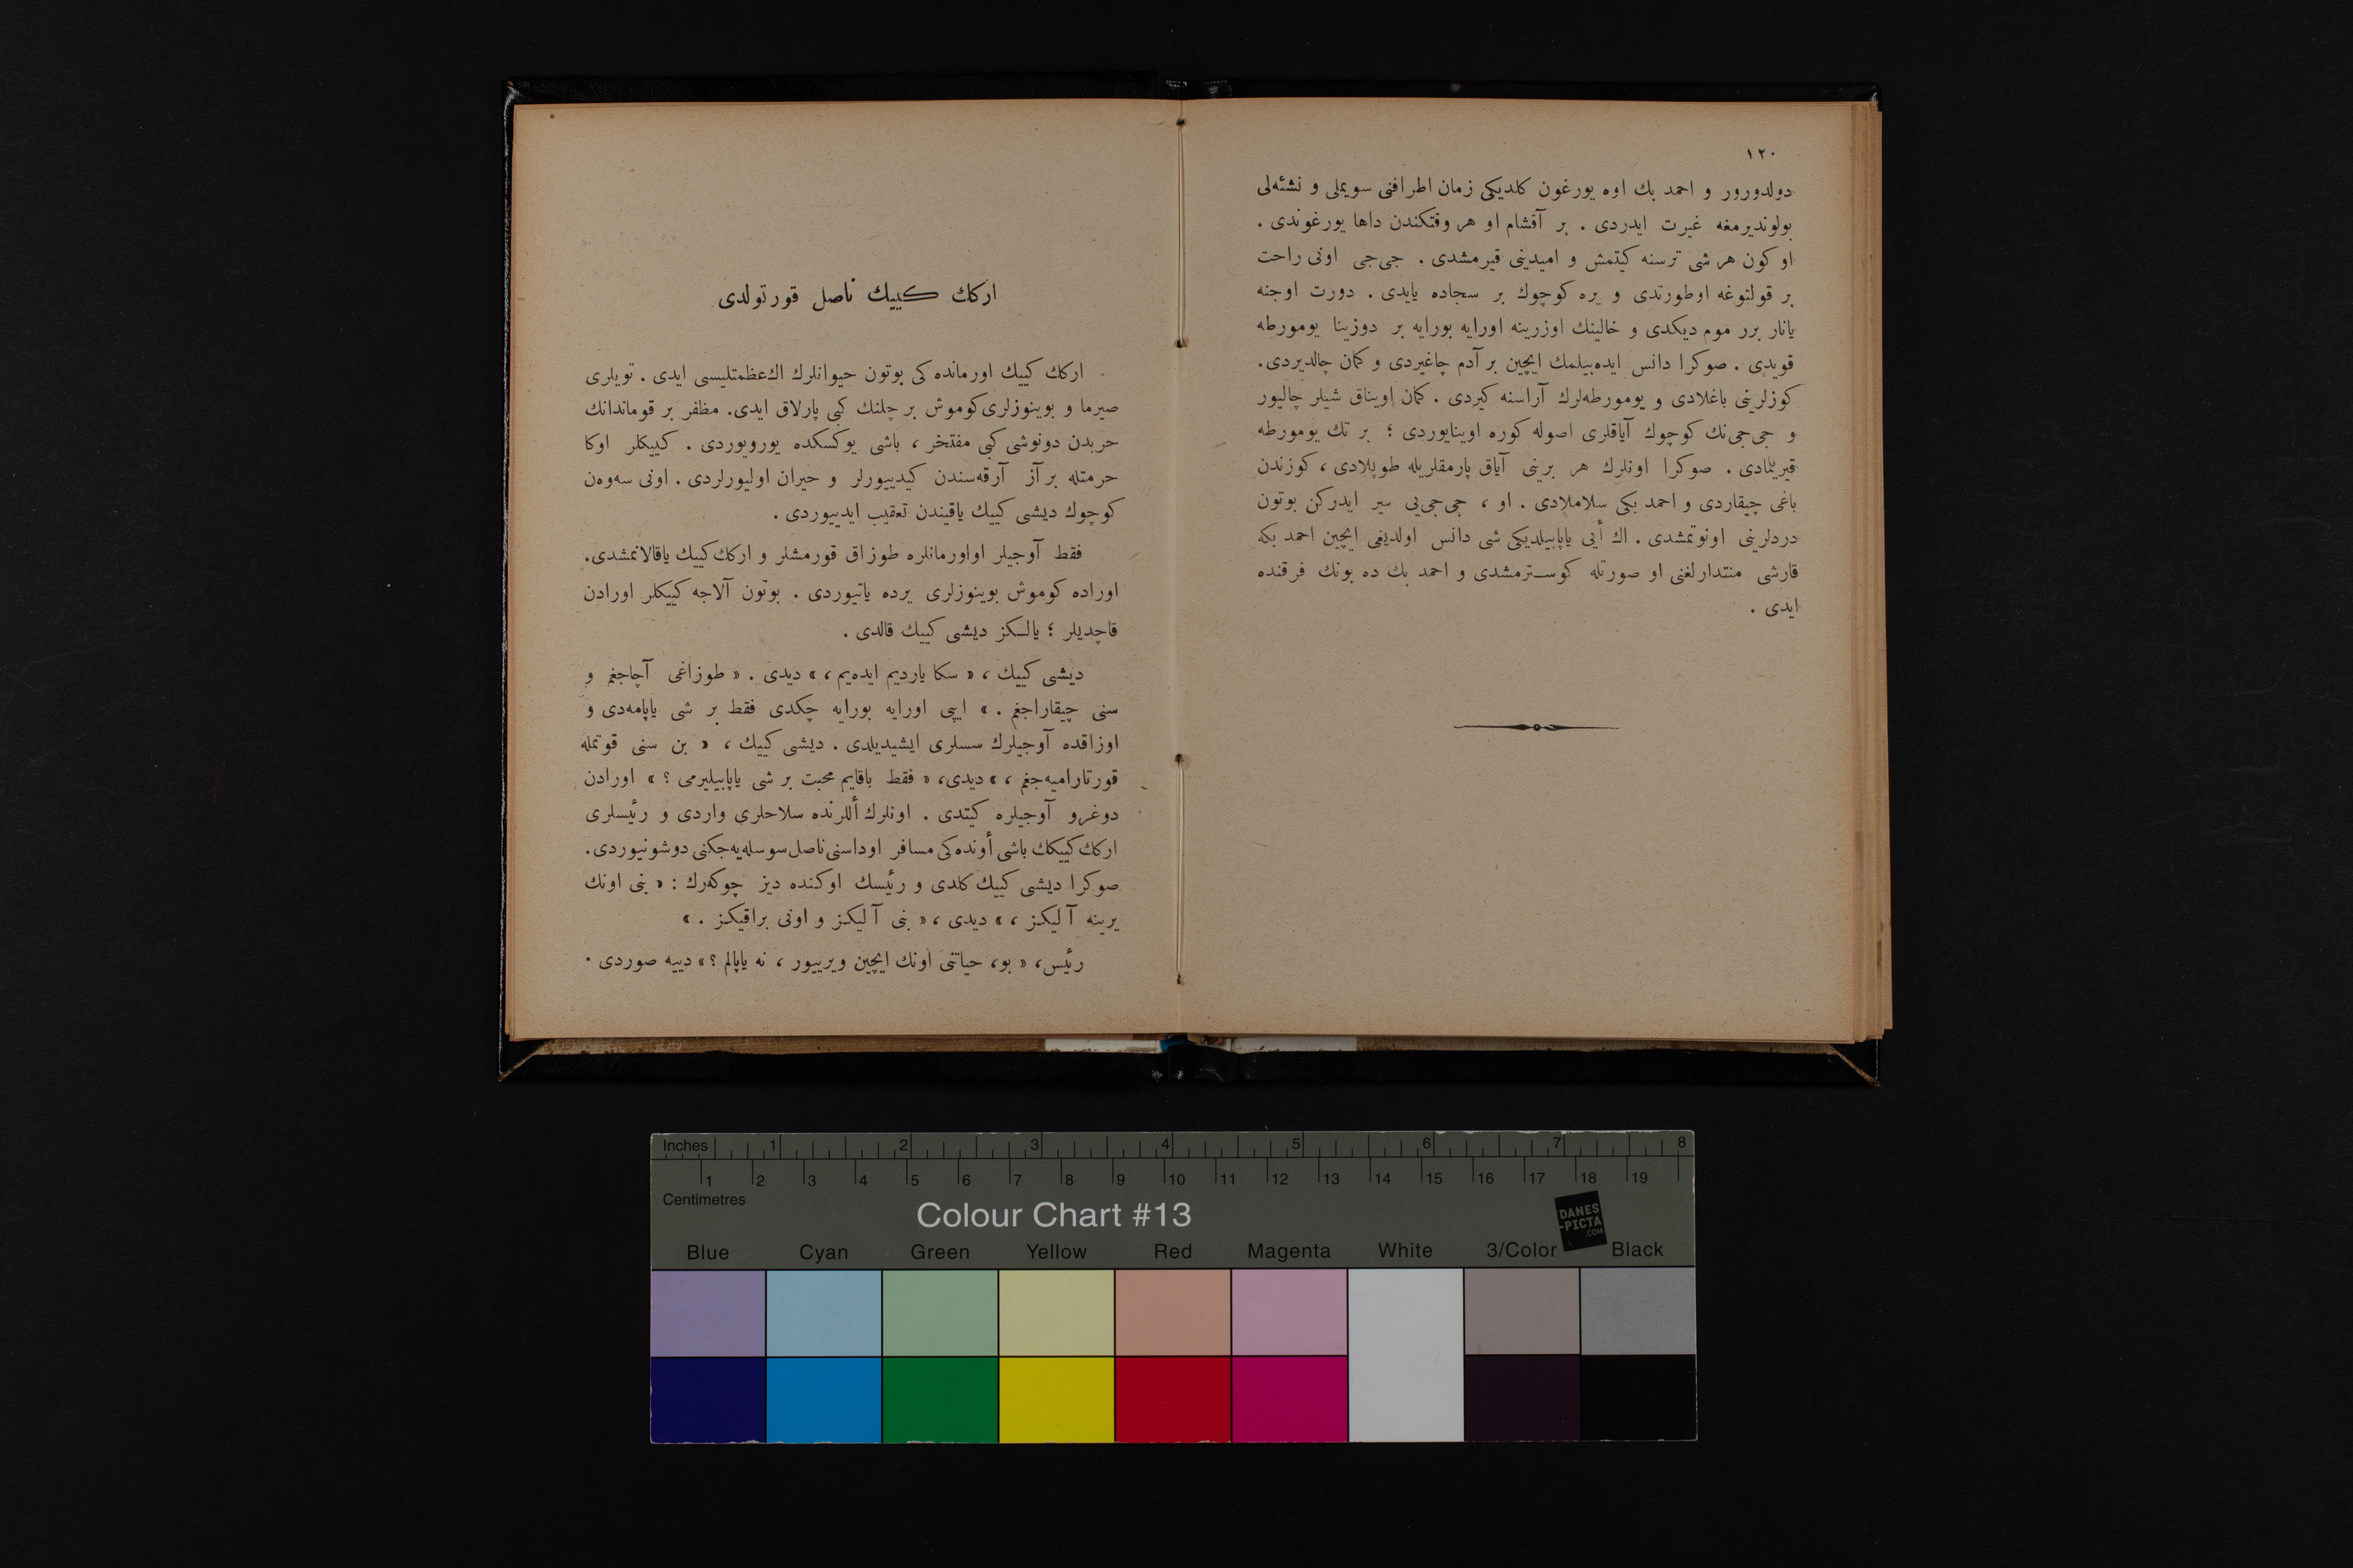 ١٢٠
دولدورور و احمد بك اوه يورغون كلديكى زمان اطرافنى سويملى و نشئه‌لى
بولونديرمغه غيرت ايدردى . بر آقشام او هر وقتكندن داها يورغوندى .
او كون هر شى ترسنه كيتمش و اميدينى قيرمشدى . جى‌جى اونى راحت
بر قولتوغه اوطورتدى و يره كوچوك بر سجاده يايدى . دورت اوجنه
يانار برر موم ديكدى و خالينك اوزرينه اورايه بورايه بر دوزينا يومورطه
قويدى . صوكرا دانس ايده‌بيلمك ايچين بر آدم چاغيردى و كمان چالديردى .
كوزلرينى باغلادى و يومورطه‌لرك آراسنه كيردى . كمان اويناق شيلر چاليور
و جى‌جى‌نك كوچوك آياقلرى اصوله كوره اوينايوردى ؛ بر تك يومورطه
قيريلمادى . صوكرا اونلرك هر برينى آياق پارمقلريله طوپلادى ، كوزندن
باغى چيقاردى و احمد بكى سلاملادى . او ، جى‌جى‌يى سير ايدركن بوتون
دردلرينى اونوتمشدى . اك أيى ياپابيلديكى شى دانس اولديغى ايچين احمد بكه
قارشى منتدارلغنى او صورتله كوسترمشدى و احمد بك ده بونك فرقنده
ايدى .
اركك كييك ناصل قورتولدى
اركك كييك اورمانده كى بوتون حيوانلرك اك‌عظمتليسى ايدى . تويلرى
صيرما و بوينوزلرى كوموش بر چلنك كبى پارلاق ايدى . مظفر بر قوماندانك
حربدن دونوشى كبى مفتخر ، باشى يوكسكده يورويوردى . كييكلر اوكا
حرمتله بر آز آرقه‌سندن كيدييورلر و حيران اوليورلردى . اونى سه‌وه‌ن
كوچوك ديشى كييك ياقيندن تعقيب ايدييوردى .
فقط آوجيلر اواورمانلره طوزاق قورمشلر و اركك كييك ياقالانمشدى .
اوراده كوموش بوينوزلرى يرده ياتيوردى . بوتون آلاجه كييكلر اورادن
قاچديلر ؛ يالكز ديشى كييك قالدى .
ديشى كييك ، « سكا يارديم ايده‌يم ، » ديدى . « طوزاغى آچاجغم و
سنى چيقاراجغم . » ايپى اورايه بورايه چكدى فقط بر شى ياپامه‌دى و
اوزاقده آوجيلرك سسلرى ايشيديلدى . ديشى كييك ، « بن سنى قوتمله
قورتاراميه‌جغم ، » ديدى ، « فقط باقايم محبت بر شى ياپابيليرمى ؟ » اورادن
دوغرو آوجيلره كيتدى . اونلرك أللرنده سلاحلرى واردى و رئيسلرى
اركك كييكك باشى أونده كى مسافر اوداسنى ناصل سوسله‌يه‌جكنى دوشونيوردى .
صوكرا ديشى كييك كلدى و رئيسك اوكنده ديز چوكه‌رك : « بنى اونك
يرينه آليكز ، » ديدى ، « بنى آليكز و اونى براقيكز . »
رئيس ، « بو ، حياتنى اونك ايچين ويرييور ، نه ياپالم ؟ » دييه صوردى .
Inches 1 2 3 4 5 6 7 8
1 2 3 4 5 6 7 8 9 10 11 12 13 14 15 16 17 18 19
Centimetres
Colour Chart #13
DANES
-PICTA
.COM
Blue Cyan Green Yellow Red Magenta White 3/Color Black